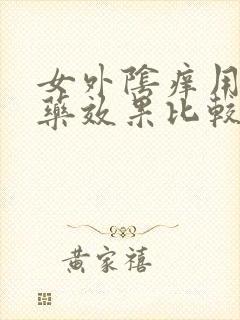 女外陰痒用
藥效果比較
黃家禧